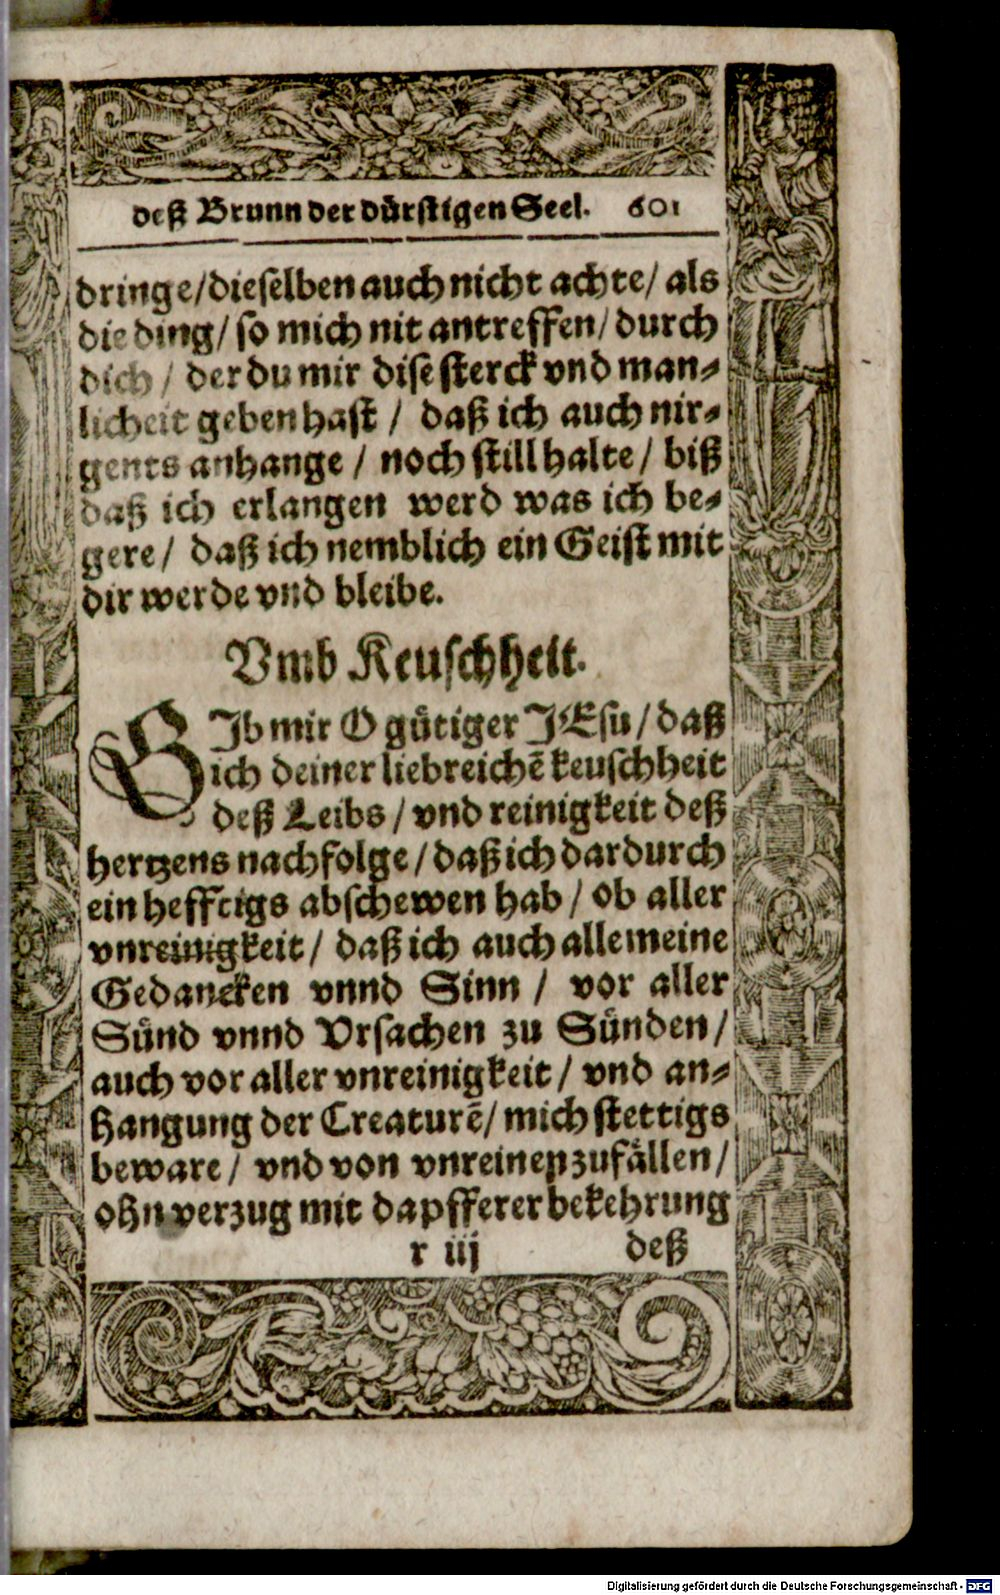 deß Brunn der dürstigen Seel. 601
dringe/dieselben auch nicht achte/ als
die ding/ so mich nit antreffen/ durch
dich/ der du mir dise sterck vnd man-
licheit geben hast/ daß ich auch nir-
gents anhange/ noch still halte/ biß
daß ich erlangen werd was ich be-
gere/ daß ich nemblich ein Geist mit
dir werde vnd bleibe.
Vmb Keuschheit.
GIb mir O gütiger JEsu/ daß
ich deiner liebreichē keuschheit
deß Leibs/ vnd reinigkeit deß
hertzens nachfolge/ daß ich dardurch
ein hefftigs abschewen hab/ ob aller
vnreinigkeit/ daß ich auch alle meine
Gedancken vnnd Sinn/ vor aller
Sünd vnnd Vrsachen zu Sünden/
auch vor aller vnreinigkeit/ vnd an-
hangung der Creaturē/ mich stettigs
beware/ vnd von vnreinen zufällen/
ohn verzug mit dapfferer bekehrung
r iij deß
Digitalisierung gefördert durch die Deutsche Forschungsgemeinschaft - DFG